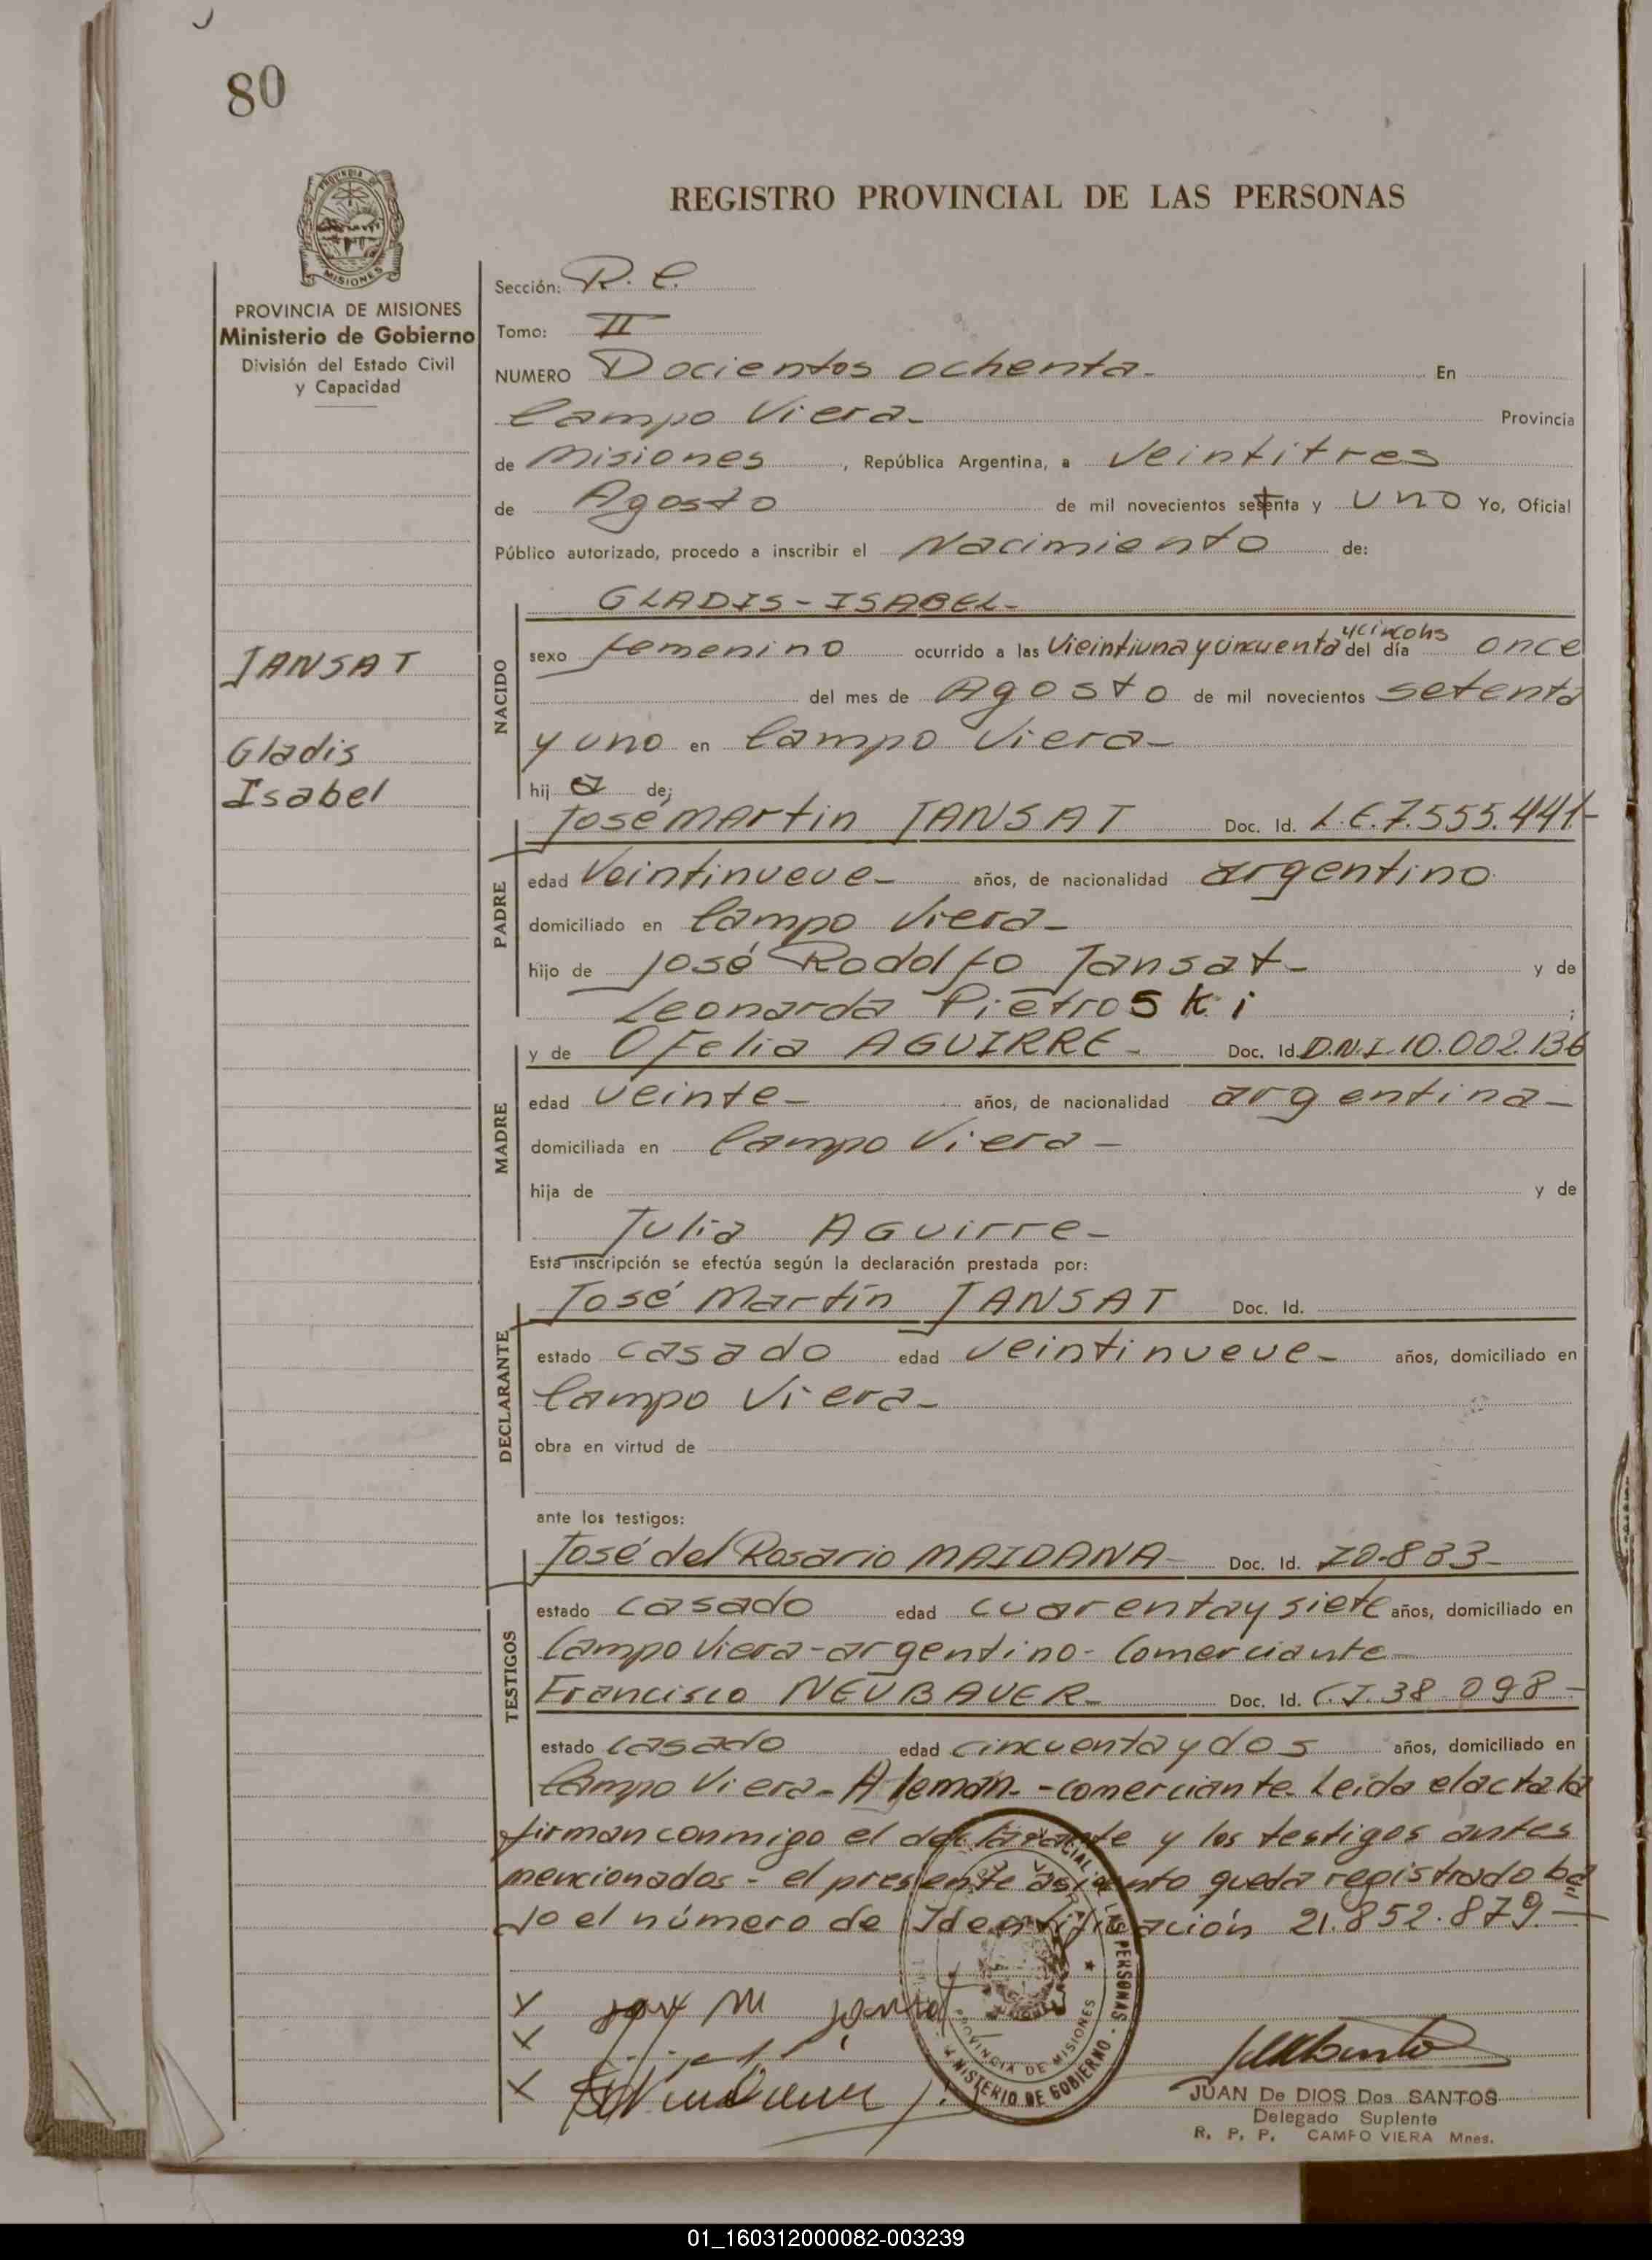 80
REGISTRO PROVINCIAL DE LAS PERSONAS
PROVINCIA DE MISIONES
Ministerio de Gobierno
División del Estado Civil
y Capacidad
Sección: R. C.
Tomo: II
NUMERO Docientos ochenta- En
Campo Viera- Provincia
de Misiones, República Argentina, a Veintitres
de Agosto de mil novecientos setenta y uno Yo, Oficial
Público autorizado, procedo a inscribir el Nacimiento de:
GLADIS-ISABEL-
JANSAT
Gladis
Isabel
NACIDO
y cinco hs
sexo femenino ocurrido a las Vieintiuna y cincuenta del día once
del mes de Agosto de mil novecientos setenta
y uno en Campo Viera-
hij a de;
José Martin JANSAT Doc. Id. L.E. 7.555.441-
PADRE
edad Veintinueve- años, de nacionalidad argentino
domiciliado en Campo Viera-
hijo de José Rodolfo Jansat- y de
Leonarda Pietroski ;
y de Ofelia AGUIRRE- Doc. Id. D.N.I. 10.002.136
MADRE
edad veinte- años, de nacionalidad argentina-
domiciliada en Campo Viera-
hija de y de
Julia AGuirre-
Esta inscripción se efectúa según la declaración prestada por:
José Martín JANSAT Doc. Id.
DECLARANTE
estado casado edad veintinueve- años, domiciliado en
Campo Viera-
obra en virtud de
ante los testigos:
José del Rosario MAIDANA- Doc. Id. 70.833-
TESTIGOS
estado casado edad cuarenta y siete años, domiciliado en
Campo Viera-argentino-Comerciante-
Francisco NEUBAUER- Doc. Id. C.I. 38.098-
estado casado edad cincuenta y dos años, domiciliado en
Campo Viera- Aleman.-comerciante- Leida el acta la
firman conmigo el declarante y los testigos antes
mencionados- el presente asiento queda registrado ba
jo el número de Identificación 21.852.879.-
José M Jansat
PROVINCIA DE MISIONES
MINISTERIO DE GOBIERNO
JUAN De DIOS Dos SANTOS
Delegado Suplente
R. P. P. CAMPO VIERA Mnes.
01_160312000082-003239